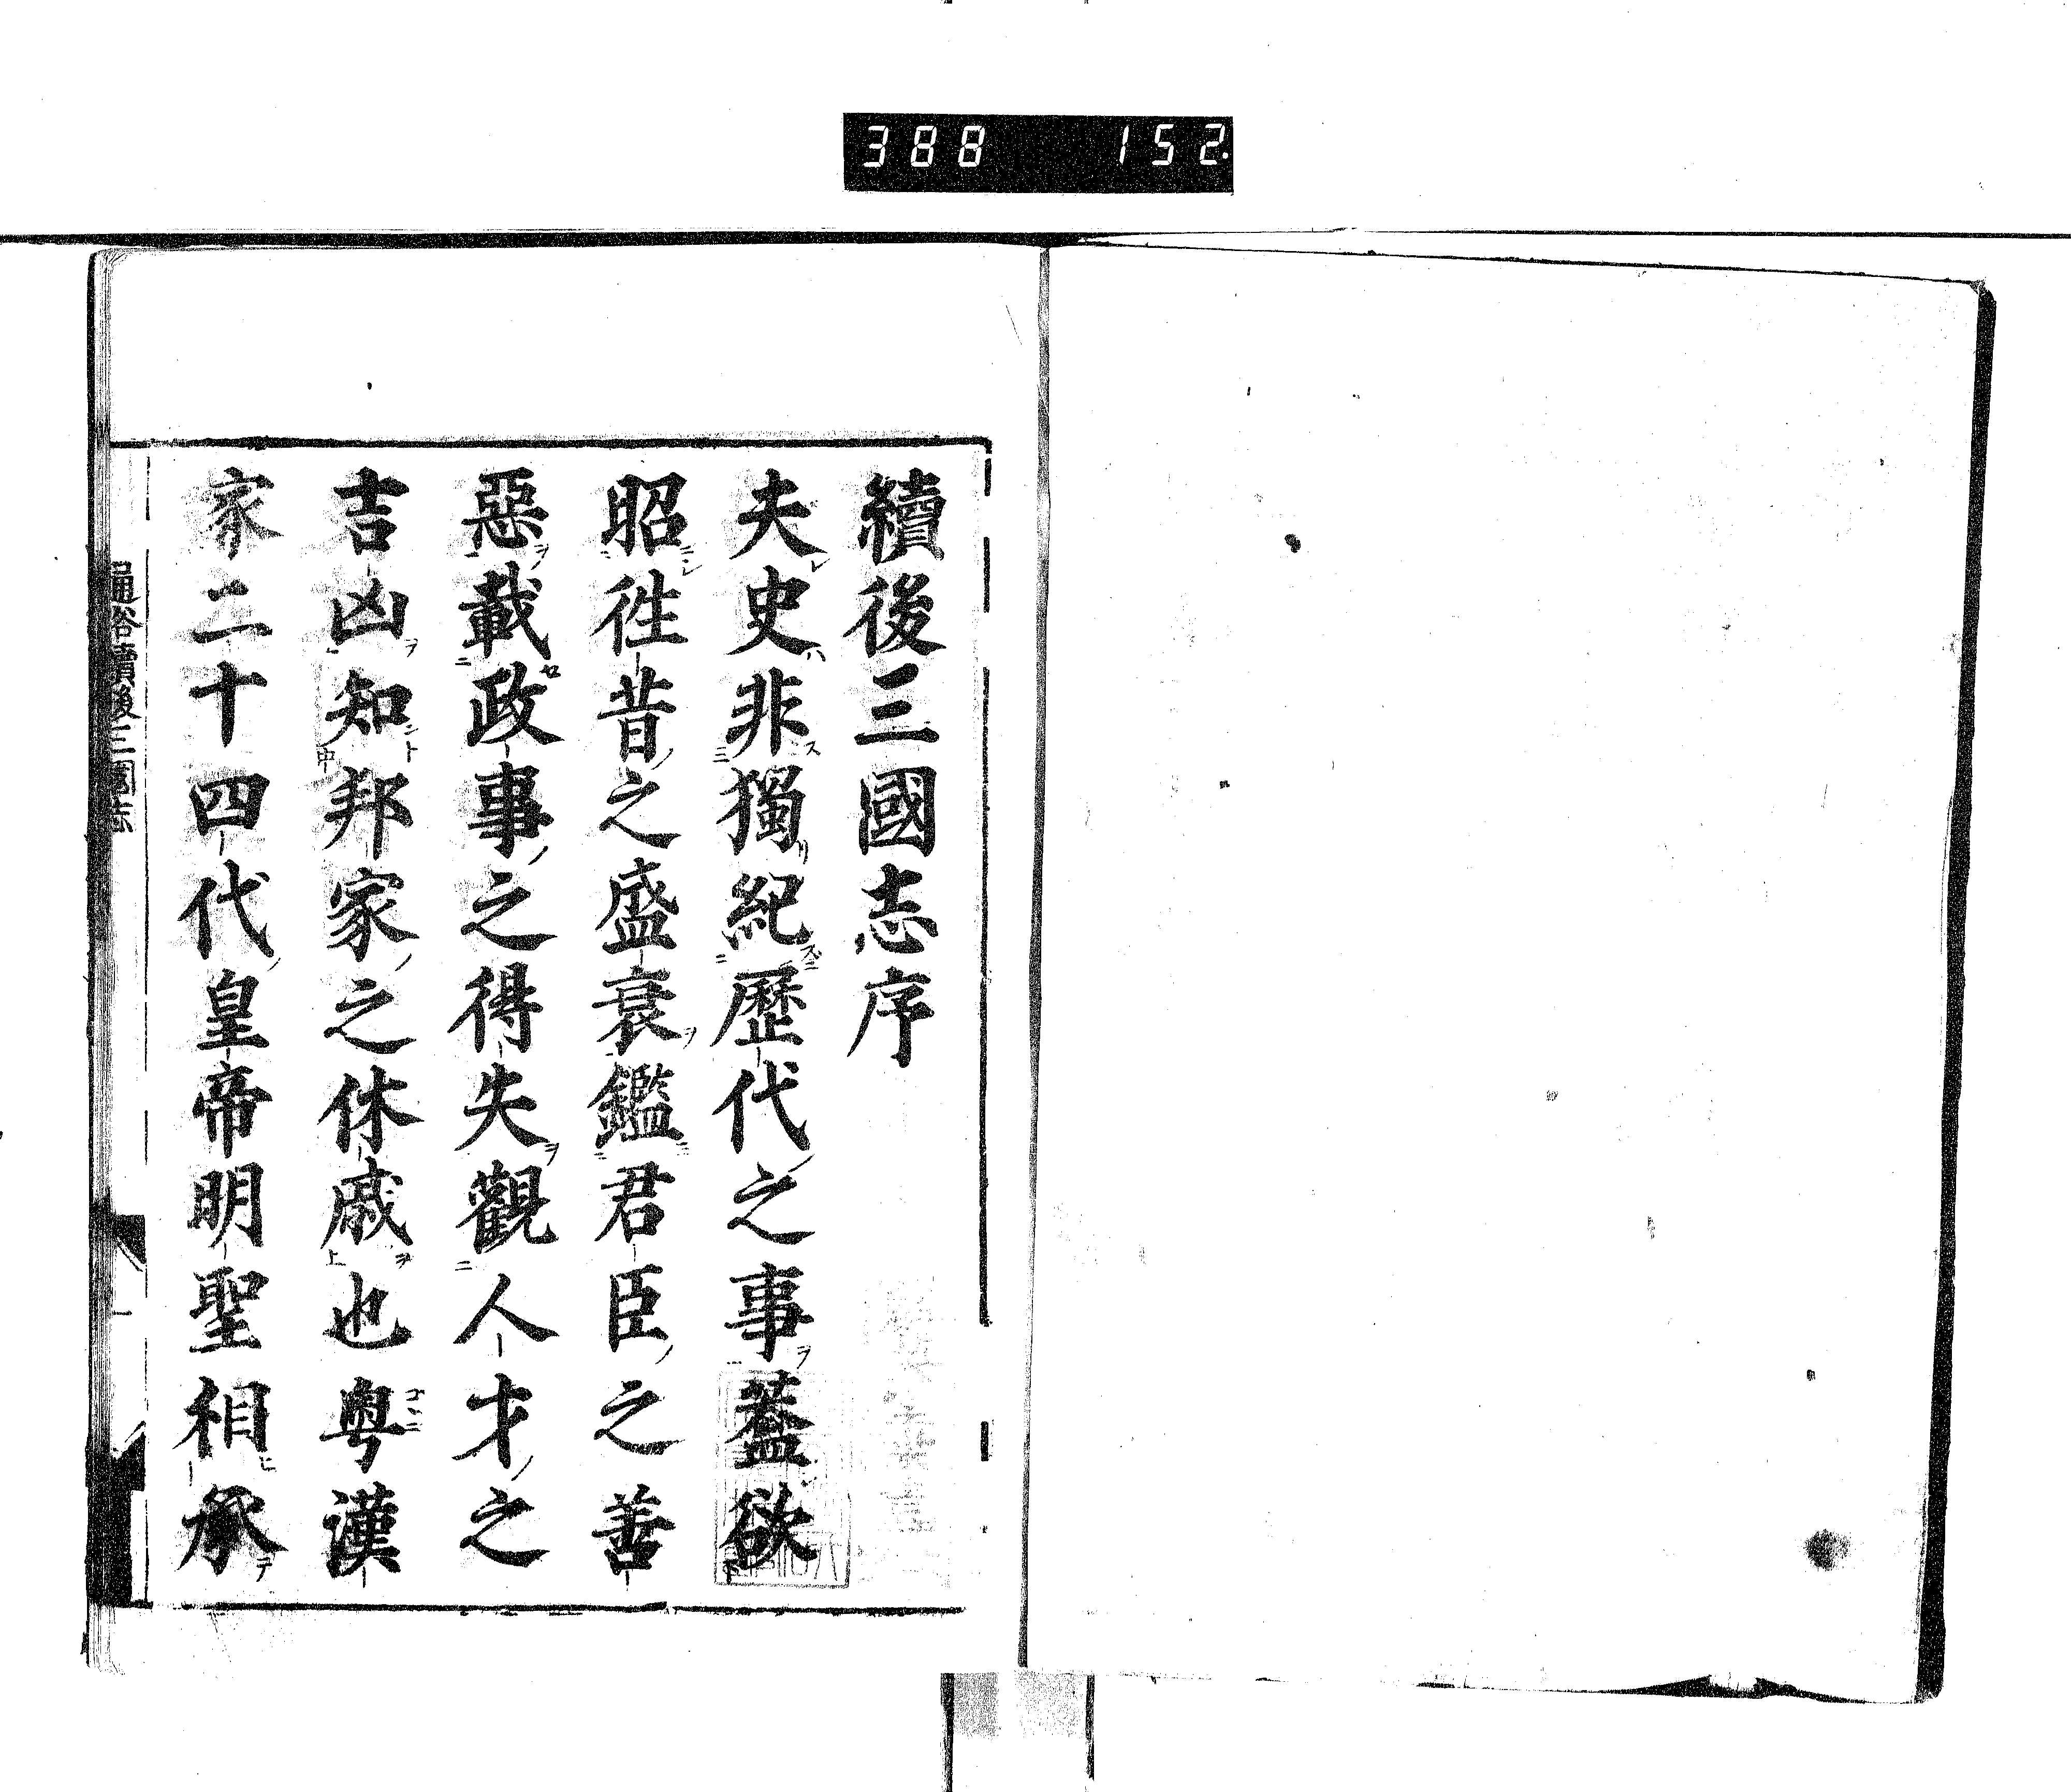 388 152
續後三國志序
夫史非獨紀歷代之事蓋欲
昭徃昔之盛衰鑑君臣之善
惡載政事之得失觀人才之
吉凶知邦家之休戚也粤漢
家二十四代皇帝明聖相承
通俗續後三國志
一